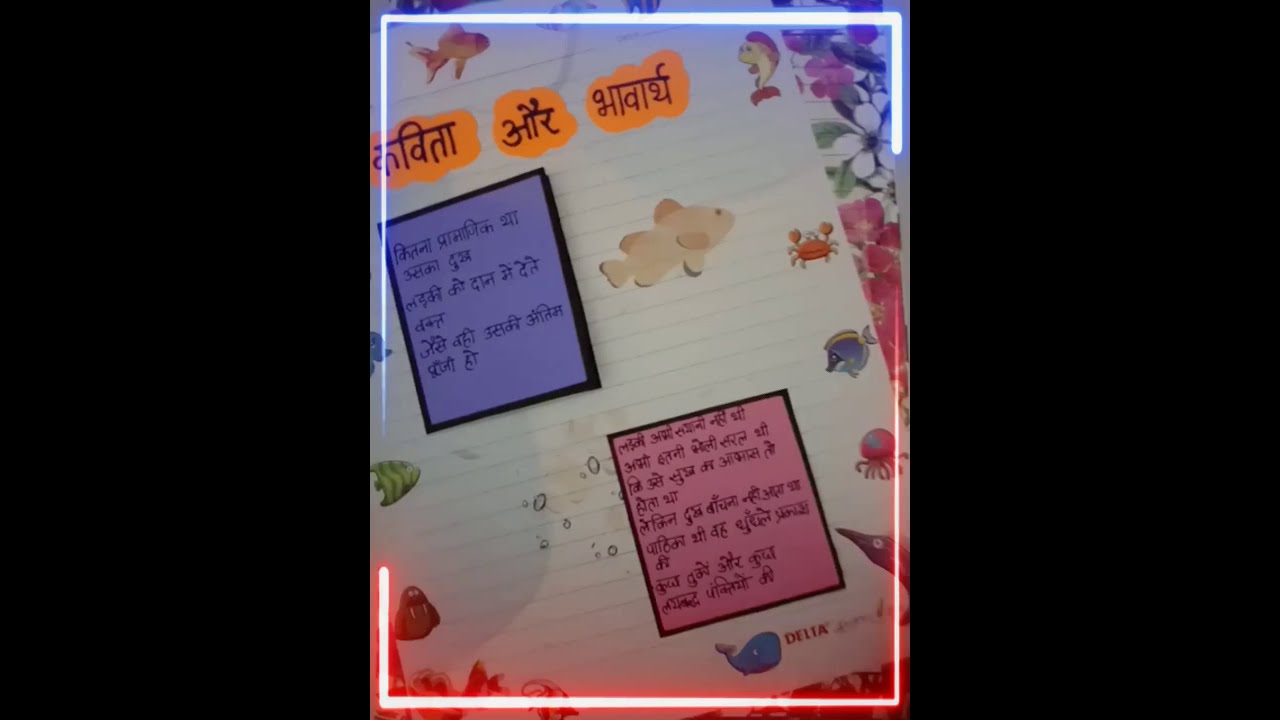 कविता और भावार्थ
कितना प्रामाणिक था
उसका दुख
लड़की को दान में देते
वक्त
जैसे वही उसकी अंतिम
पूँजी हो
लड़की अभी सयानी नहीं थी
अभी इतनी भोली सरल थी
कि उसे सुख का आभास तो
होता था
लेकिन दुख बाँचना नहीं आता था
पाठिका थी वह धुँधले प्रकाश
की
कुछ तुकों और कुछ
लयबद्ध पंक्तियों की
DELTA